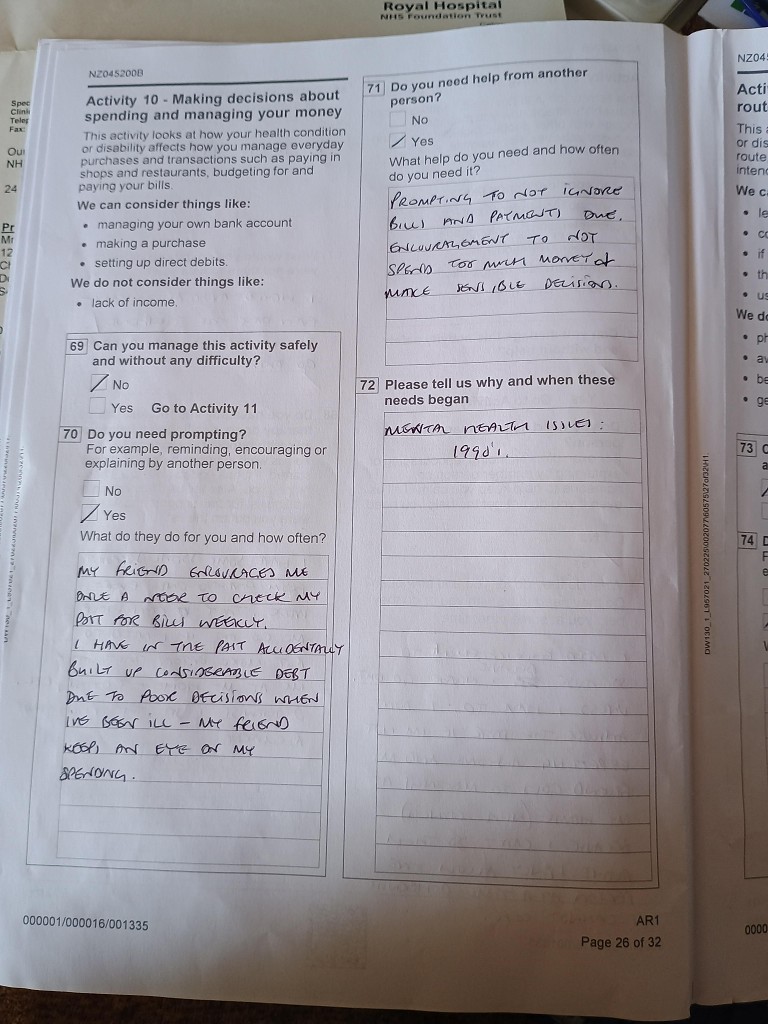 Royal Hospital
NHS Foundation Trust
NZ045200B
Activity 10 - Making decisions about
spending and managing your money
This activity looks at how your health condition
or disability affects how you manage everyday
purchases and transactions such as paying in
shops and restaurants, budgeting for and
paying your bills.
We can consider things like:
• managing your own bank account
• making a purchase
• setting up direct debits.
We do not consider things like:
• lack of income.
69 Can you manage this activity safely
and without any difficulty?
No
Yes Go to Activity 11
70 Do you need prompting?
For example, reminding, encouraging or
explaining by another person.
No
Yes
What do they do for you and how often?
MY FRIEND ENCOURAGES ME
ONCE A WEEK TO CHECK MY
POST FOR BILLS WEEKLY.
I HAVE IN THE PAST ACCIDENTALLY
BUILT UP CONSIDERABLE DEBT
DUE TO POOR DECISIONS WHEN
IVE BEEN ILL - MY FRIEND
KEEPS AN EYE ON MY
SPENDING.
71 Do you need help from another
person?
No
Yes
What help do you need and how often
do you need it?
PROMPTING TO NOT IGNORE
BILLS AND PAYMENTS DUE.
ENCOURAGEMENT TO NOT
SPEND TOO MUCH MONEY &
MAKE SENSIBLE DECISIONS.
72 Please tell us why and when these
needs began
MENTAL HEALTH ISSUES:
1990's.
000001/000016/001335
AR1
Page 26 of 32
NZ04
Acti
rout
This
or dis
route
inten
We c
We d
73
74
0000
Spec
Clini
Telep
Fax:
Our
NH
24
Pr
Mr
12